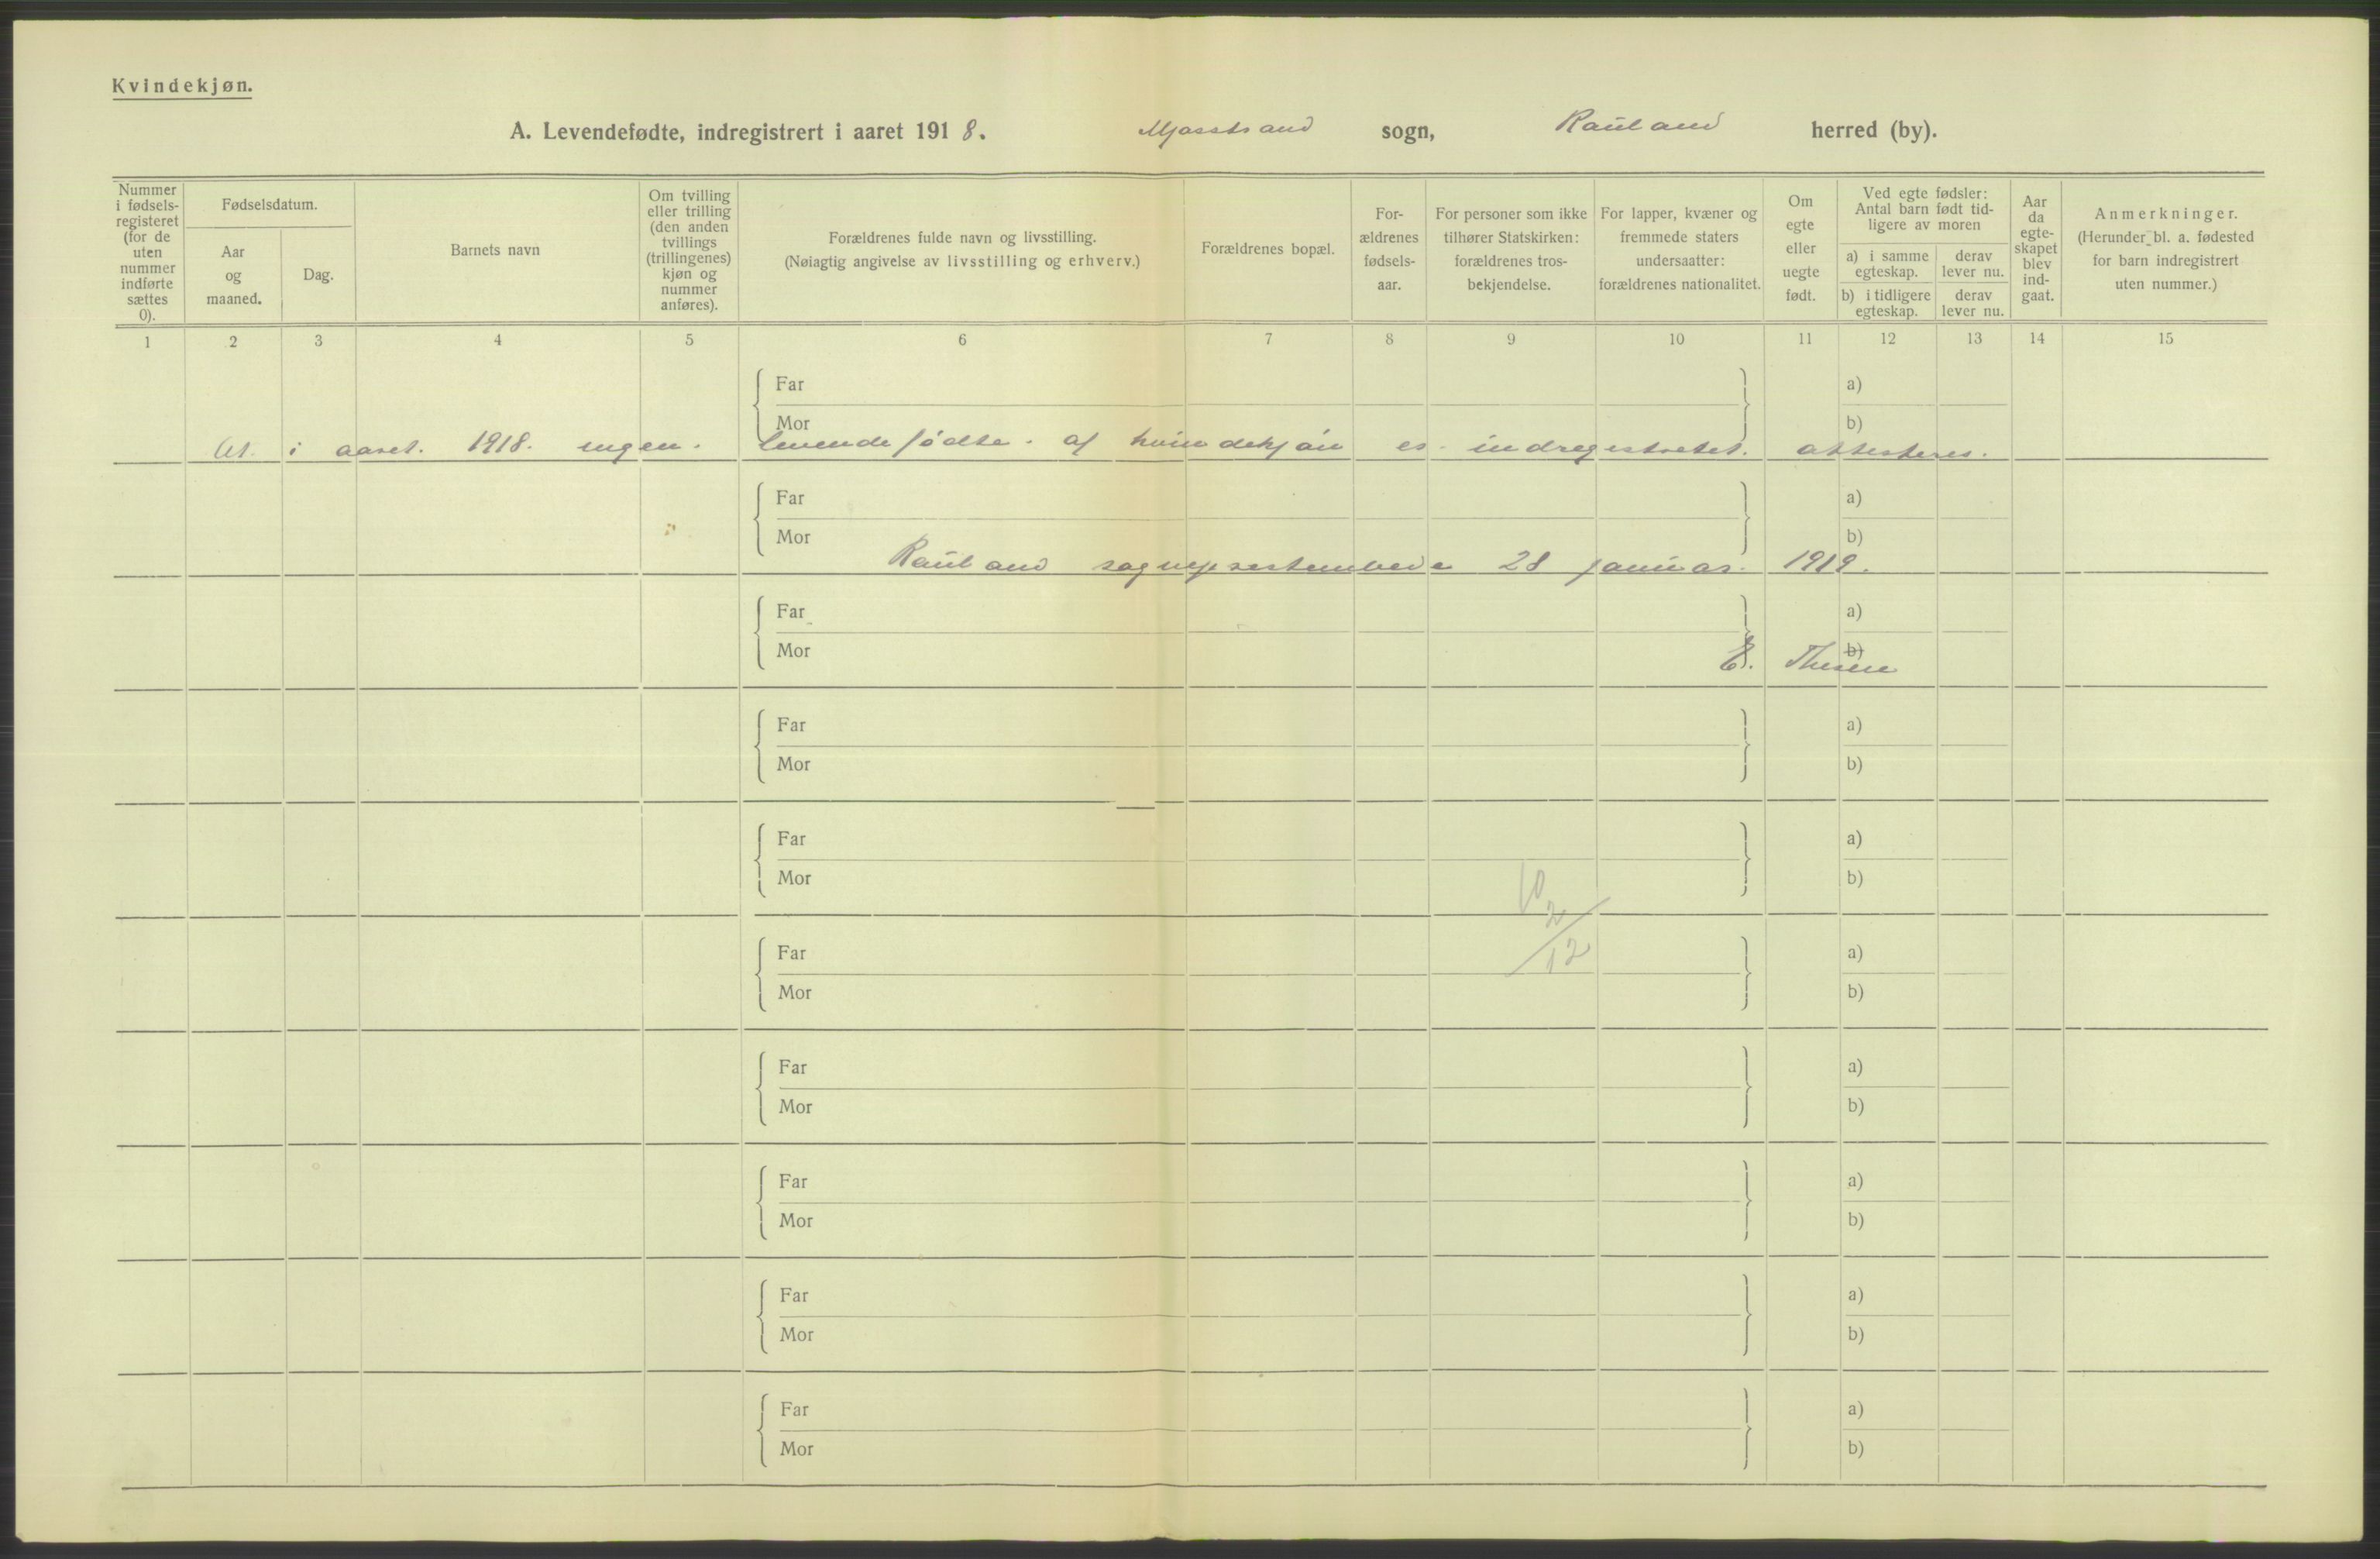 Kvindekjøn.
A. Levendefødte, indregistrert i aaret 1918. Mjosstrand sogn, Rauland herred (by).
Nummer i fødsels-registeret (for de uten nummer indførte sættes 0).
Fødselsdatum.
Aar og maaned.
Dag.
Barnets navn
Om tvilling eller trilling (den anden tvillings (trillingenes) kjøn og nummer anføres).
Forældrenes fulde navn og livsstilling.
(Nøiagtig angivelse av livsstilling og erhverv.)
Forældrenes bopæl.
For-ældrenes fødsels-aar.
For personer som ikke tilhører Statskirken: forældrenes tros-bekjendelse.
For lapper, kvæner og fremmede staters undersaatter: forældrenes nationalitet.
Om egte eller uegte født.
Ved egte fødsler: Antal barn født tid-ligere av moren
a) i samme egteskap.
derav lever nu.
b) i tidligere egteskap.
derav lever nu.
Aar da egte-skapet blev ind-gaat.
Anmerkninger.
(Herunder bl. a. fødested for barn indregistrert uten nummer.)
1 2 3 4 5 6 7 8 9 10 11 12 13 14 15
Far a)
Mor b)
At i aaret 1918 ingen levendefødte af kvindekjøn er indregistreret attesteres.
Far a)
Mor b)
Rauland sogneprestembede 28 januar 1919.
Far a)
Mor b)
E. Thesen
Far a)
Mor b)
Far a)
Mor b)
10
2/12
Far a)
Mor b)
Far a)
Mor b)
Far a)
Mor b)
Far a)
Mor b)
Far a)
Mor b)